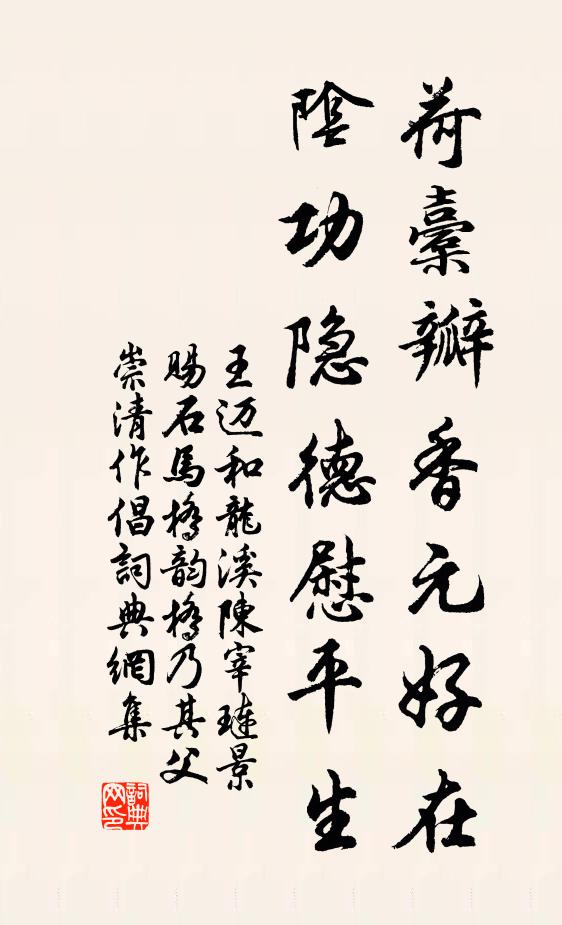 荷橐瓣香元好在
陰功隐德慰平生
王迈和龍溪陳宰璉景
賜石馬橋韵橋乃其父
崇清作倡詞典網集
詞典网印